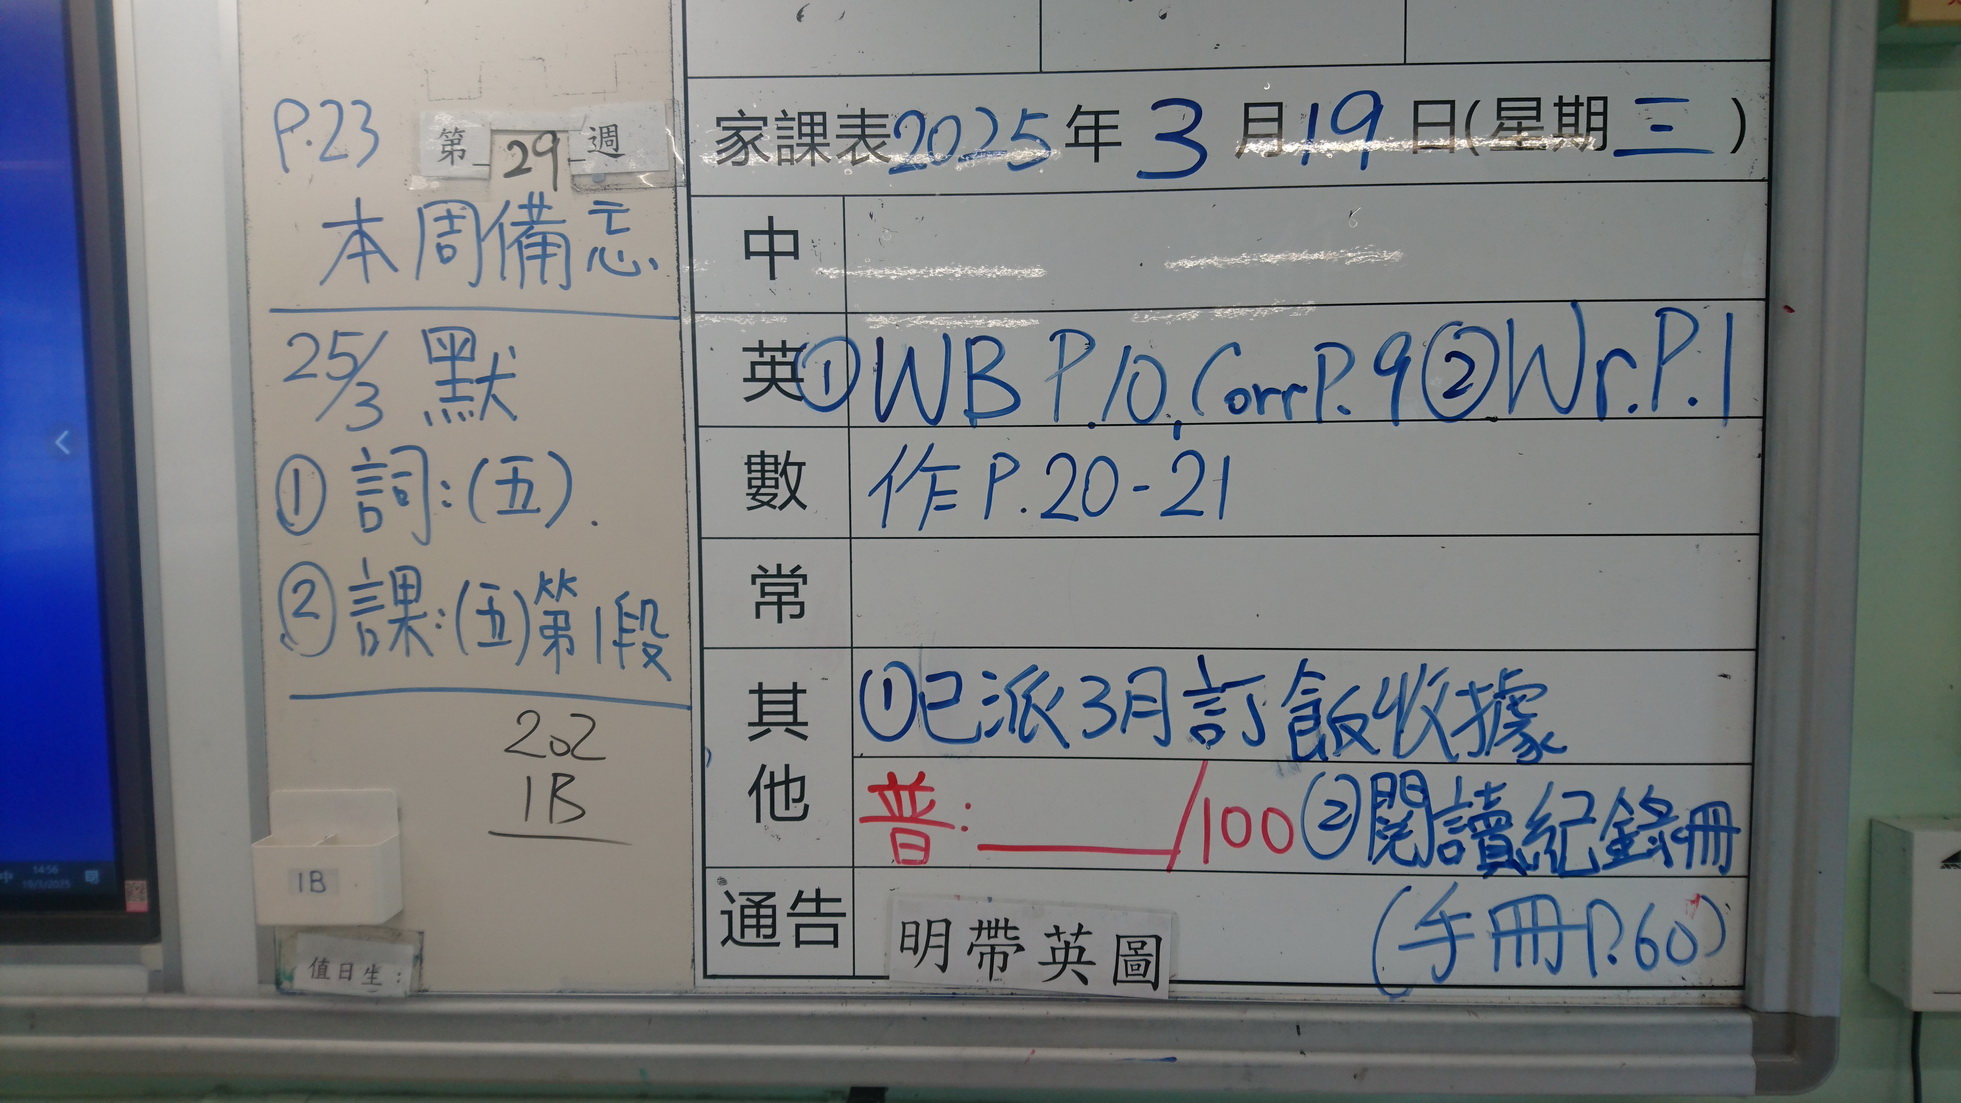 P.23
第 29 週
本周備忘
25/3 默
① 詞:(五).
② 課:(五)第1段
202
1B
1B
值日生:
家課表2025年3月19日(星期三)
中
英 ①WB P.10, Corr P.9 ②Wr.P.1
數 作P.20-21
常
其他 ①已派3月訂飯收據
普:____/100 ②閱讀紀錄冊
(手冊P.60)
通告 明帶英圖
14:56
19/3/2025